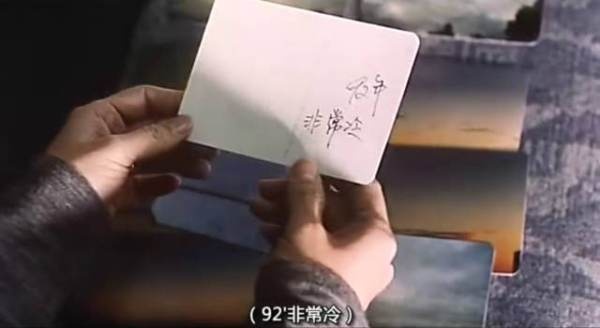 92年
非常冷
（92'非常冷）